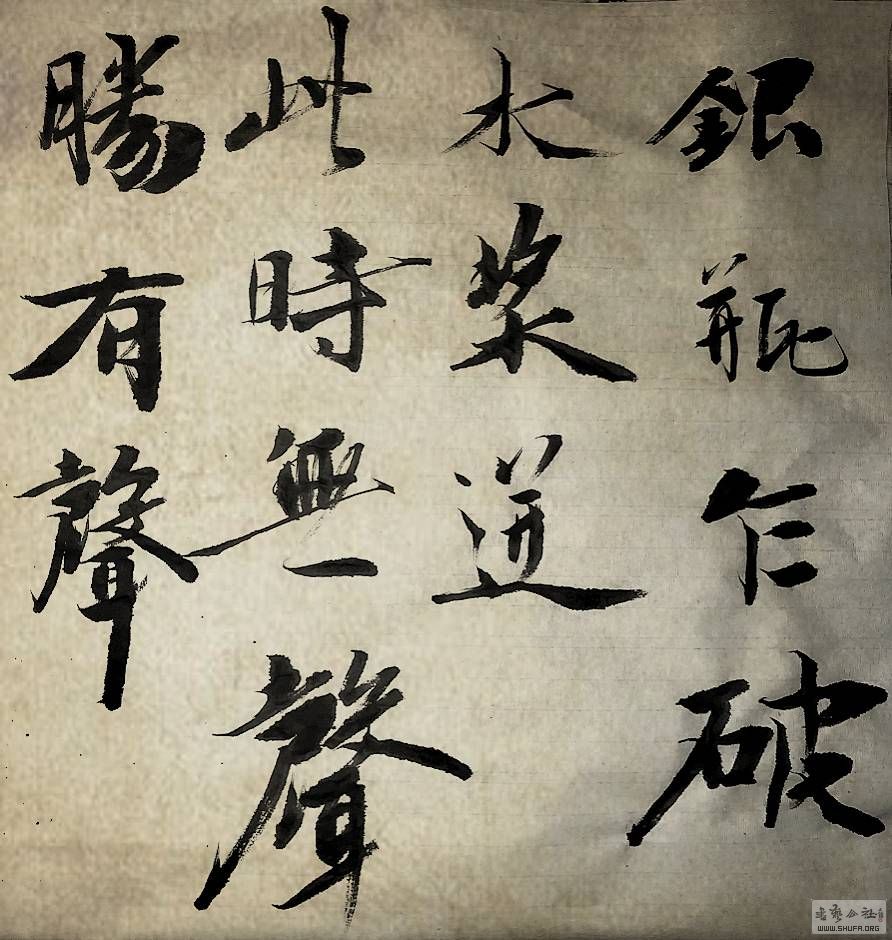 銀瓶乍破
水漿迸
此時無聲
勝有聲
書藝公社
WWW.SHUFA.ORG